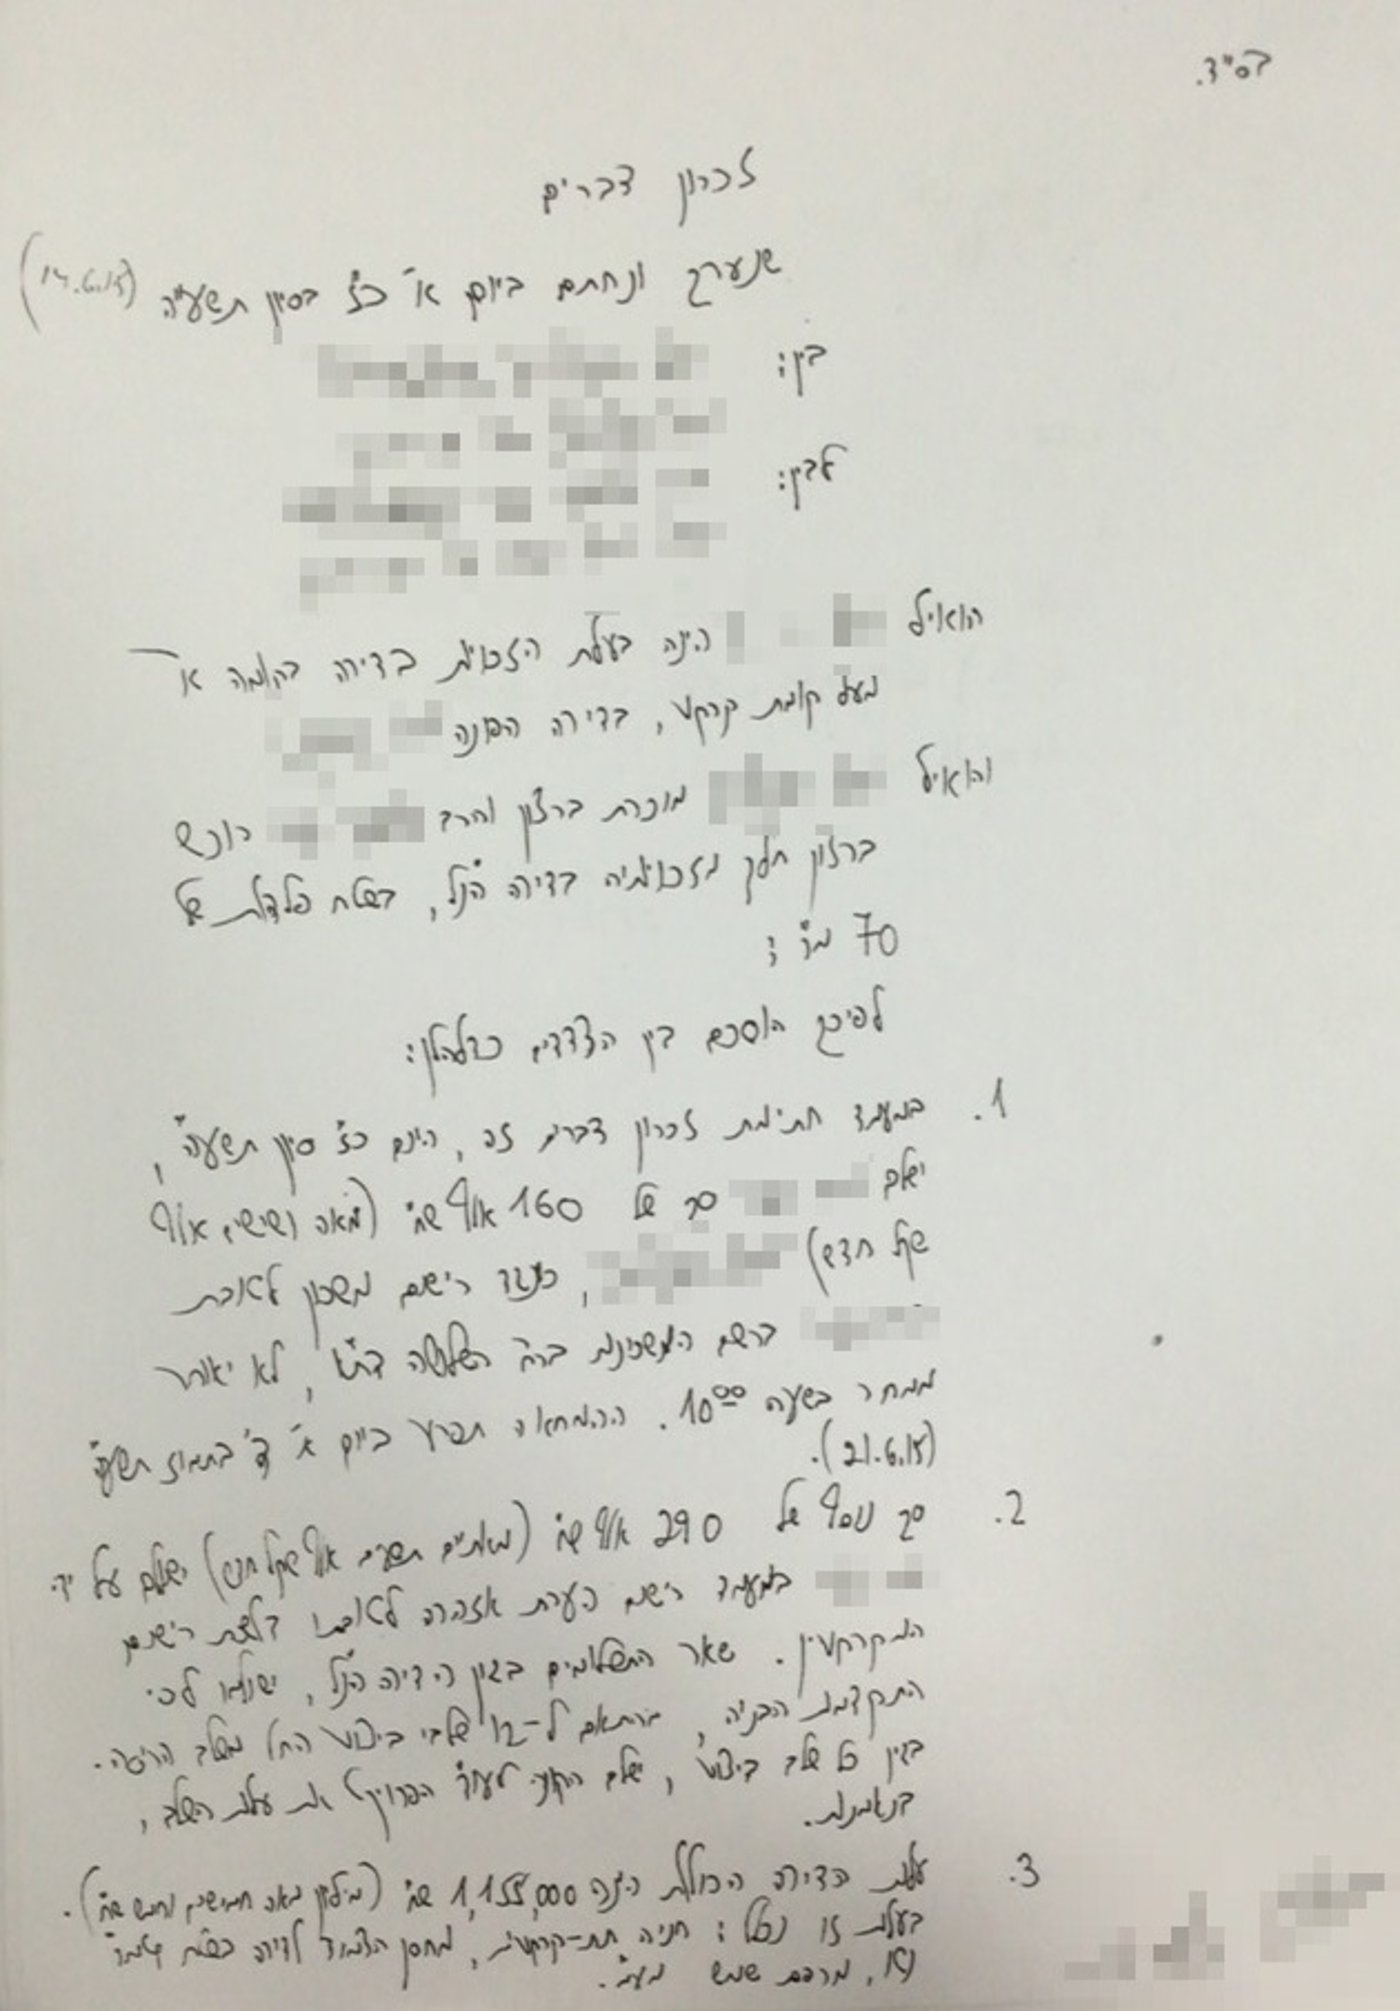 בס"ד.
זכרון דברים
שנערך ונחתם ביום א' כ"ז בסיון תשע"ה (14.6.15)
בין:
לבין:
הואיל הינה בעלת הזכויות בדירה בקומה א'
מעל קומת קרקע, בדירה הפונה
והואיל מוכרת ברצון והרב רוכש
ברצון חלק מזכויותיה בדירה הנ"ל, בשטח פלדלת של
70 מ"ר ;
לפיכך הוסכם בין הצדדים כדלהלן:
1. במעמד חתימת זכרון דברים זה, היום כ"ז סיון תשע"ה,
ישלם סך של 160 אלף ש"ח (מאה ושישים אלף
שקל חדש) , כנגד רישום משכון לטובת
ברשם המשכונות ברח' השלושה בת"א, לא יאוחר
ממחר בשעה 10:00. ההמחאה תפרע ביום א' ד' בתמוז תשע"ה
(21.6.15).
2. סך נוסף של 290 אלף ש"ח (מאתיים תשעים אלף שקל חדש) ישולם על ידי
במעמד רישום הערת אזהרה לטובתו בלשכת רישום
המקרקעין. שאר התשלומים בגין הדירה הנ"ל, ישולמו לפי
התקדמות הבניה, בהתאם ל-12 שלבי ביצוע החל משלב הריסה.
בגין כל שלב ביצוע, ישלם הקונה לעו"ד הפרויקט את עלות השלב,
בנאמנות.
3. עלות הדירה הכוללת הינה 1,155,000 ש"ח (מיליון מאה חמישים וחמש ש"ח).
בעלות זו נכלל: חניה תת-קרקעית, מחסן הצמוד לדירה בשטח
מרפסת שמש